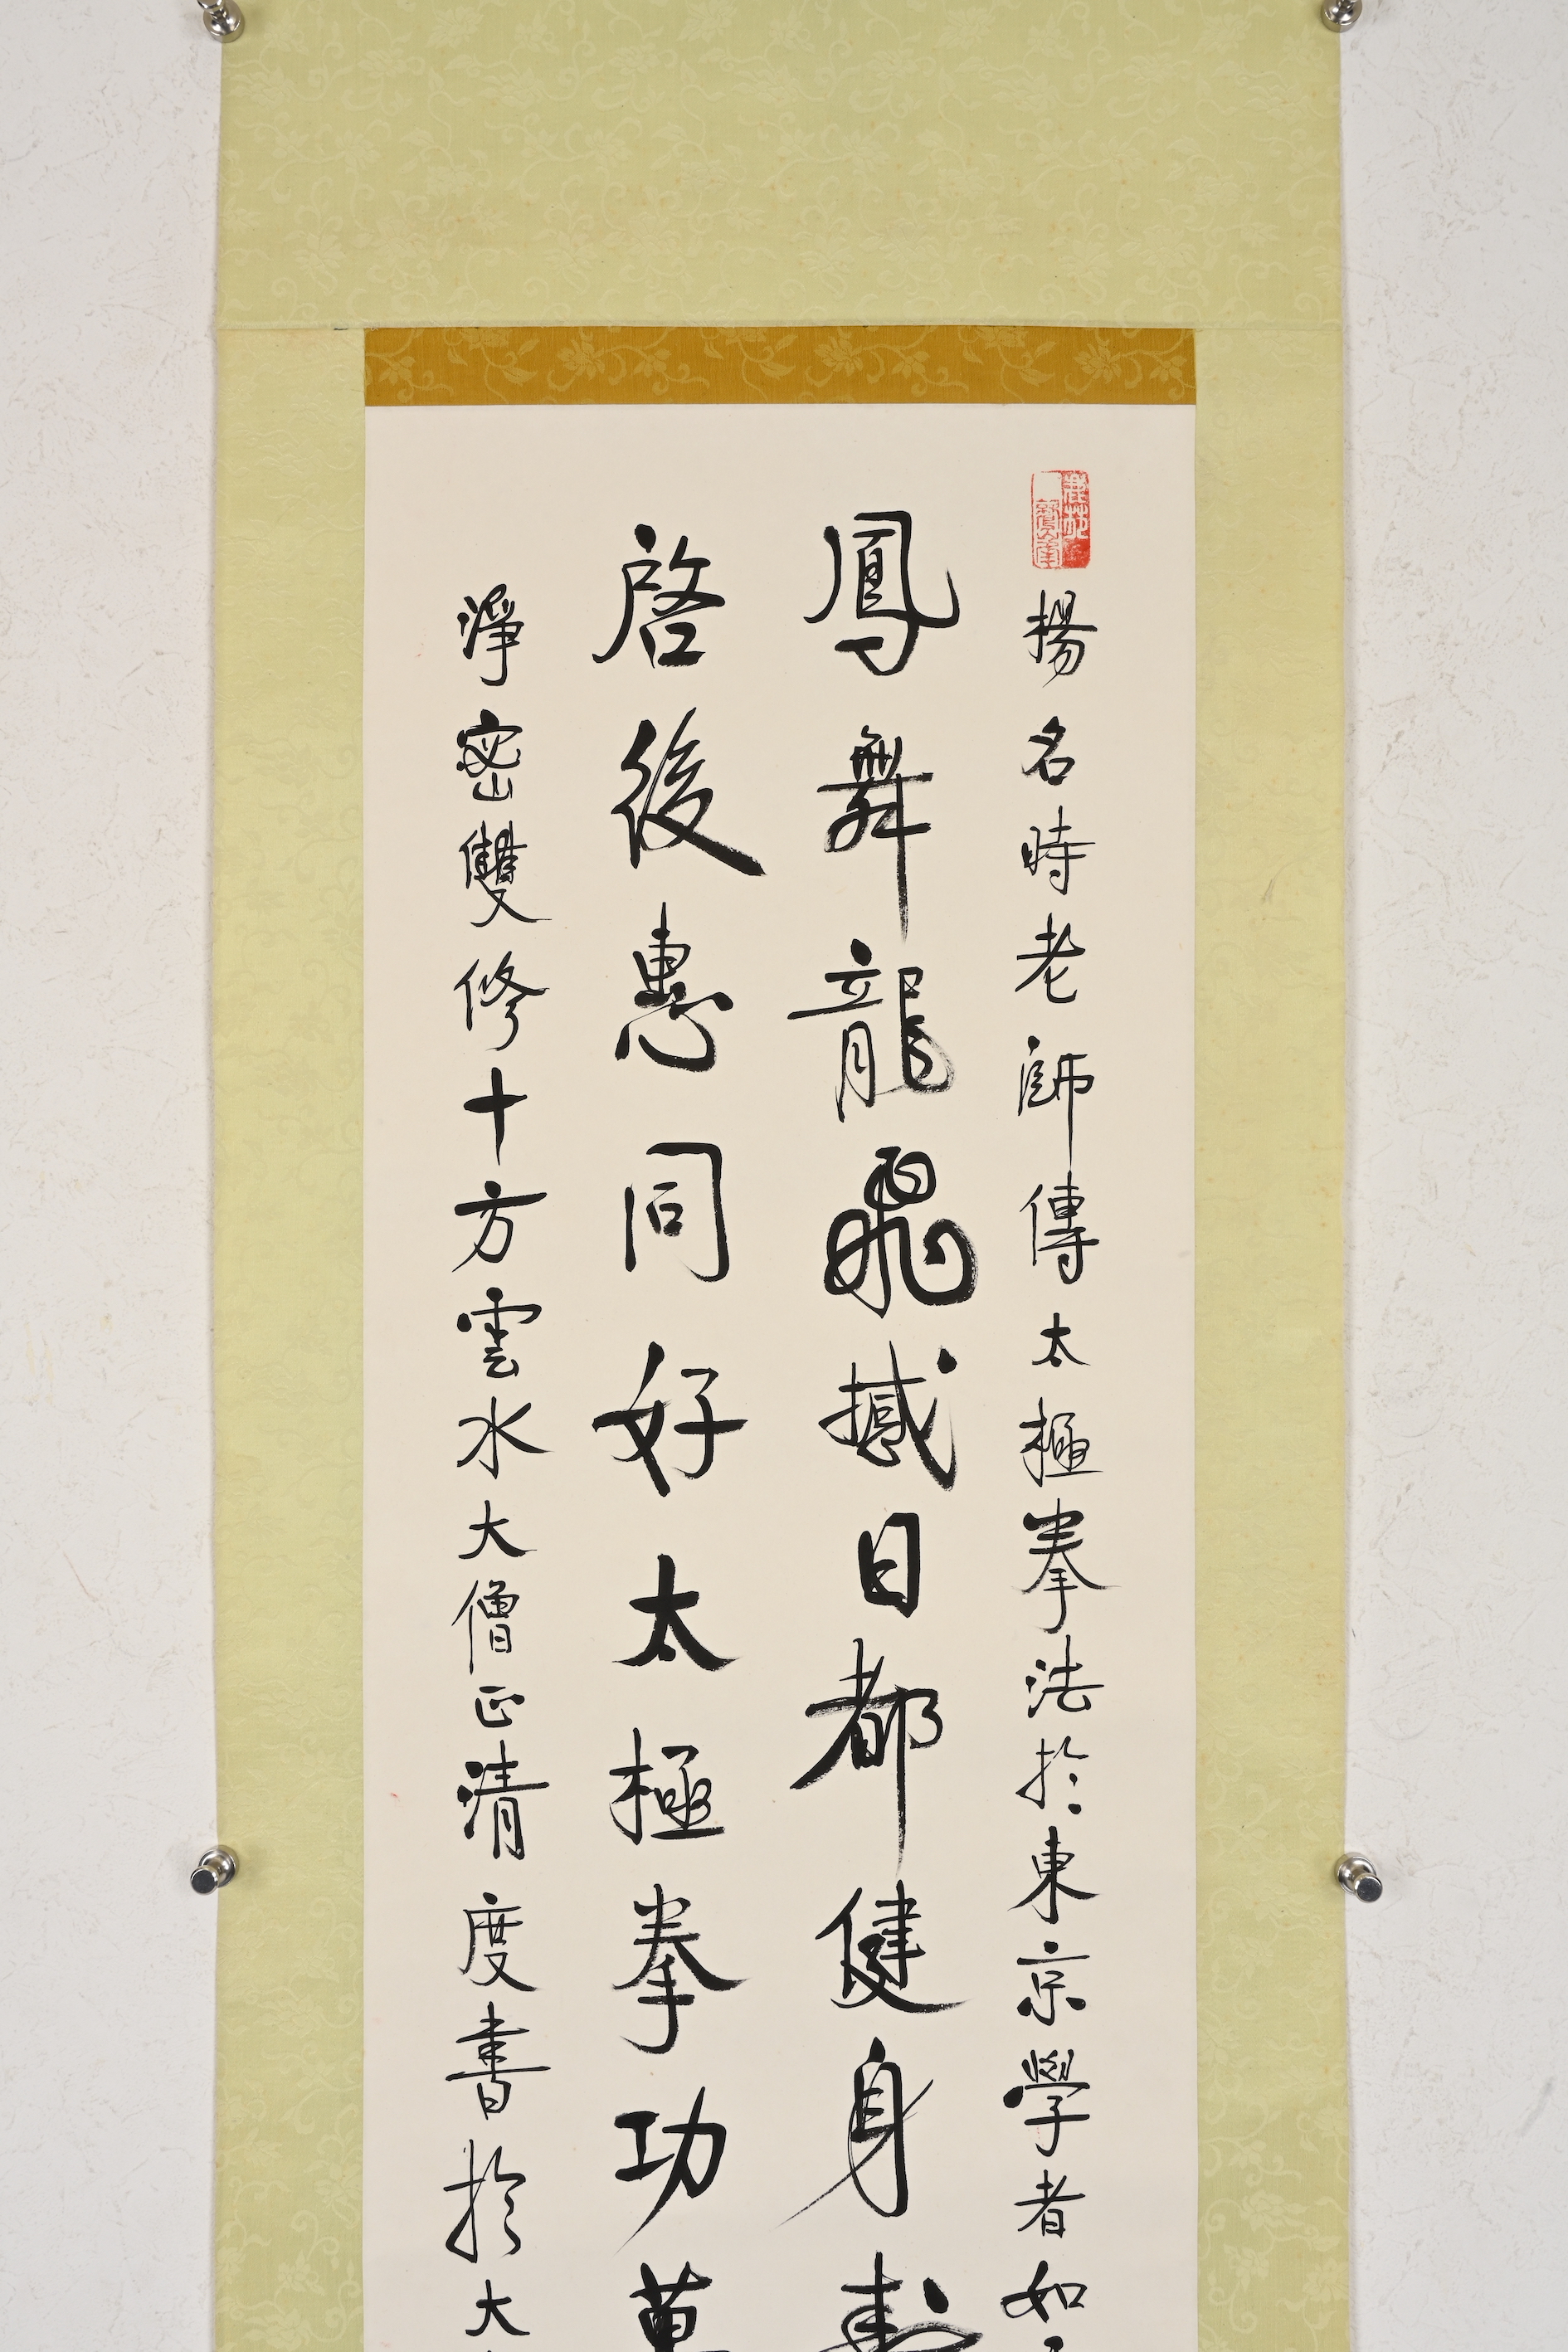 揚名時老師傳太極拳法於東京學者如
鳳舞龍飛撼日都健身壽
啓後惠同好太極拳功萬
淨密雙修十方雲水大僧正清度書於大